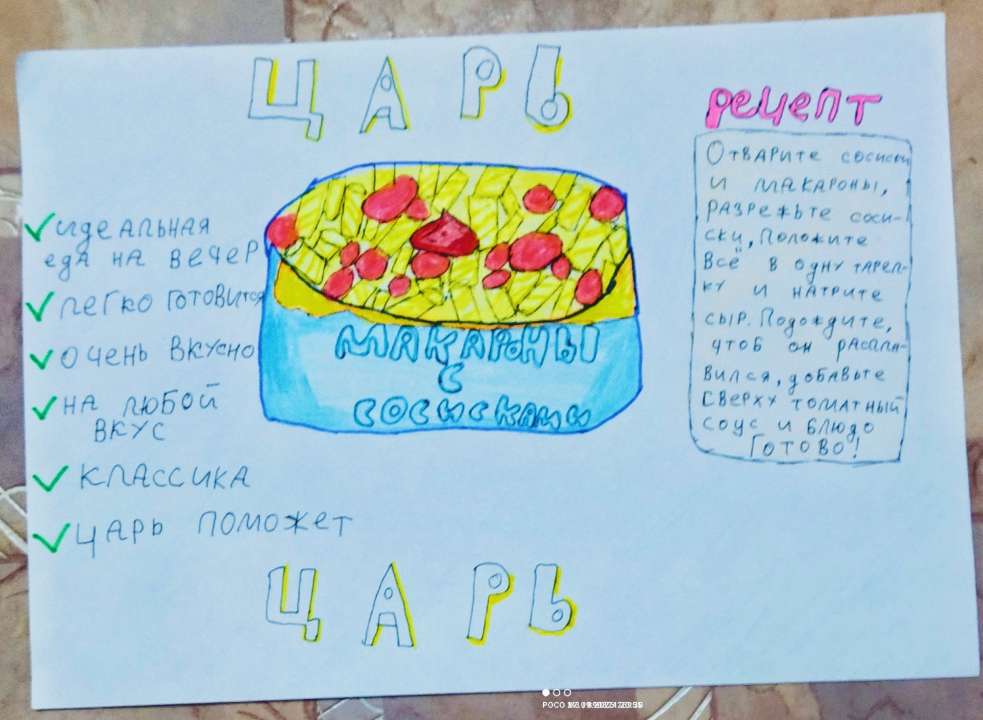 ЦАРЬ
✓ идеальная
еда на вечер
✓ легко готовится
✓ очень вкусно
✓ на любой
вкус
✓ классика
✓ царь поможет
МАКАРОНЫ
С
СОСИСКАМИ
рецепт
Отварите сосиски
и макароны,
разрежьте соси-
ски, положите
всё в одну тарел-
ку и натрите
сыр. Подождите,
чтоб он распла-
вился, добавьте
сверху томатный
соус и блюдо
готово!
ЦАРЬ
POCO